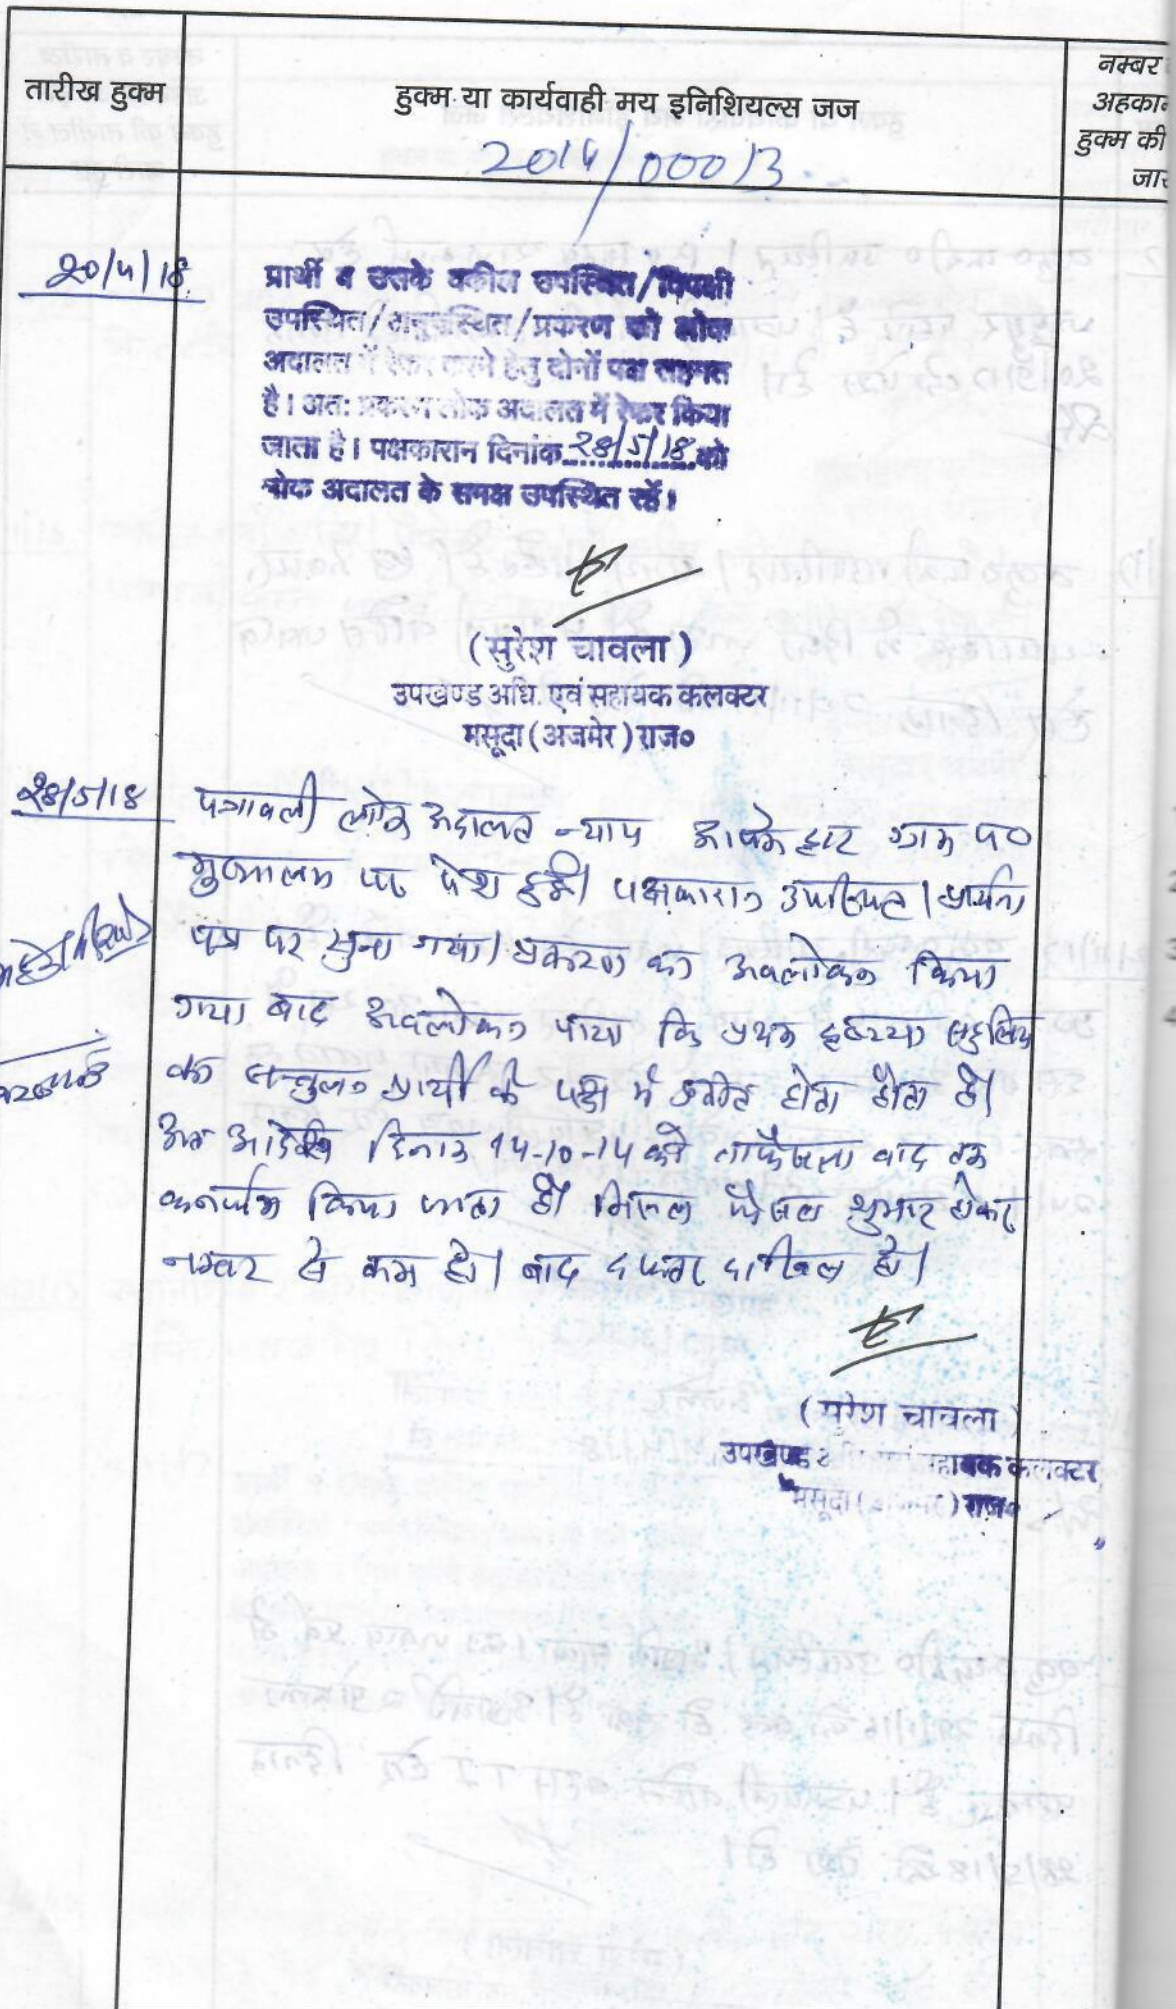 तारीख हुक्म
हुक्म या कार्यवाही मय इनिशियल्स जज
नम्बर
अहकाम
हुक्म की
जार
2014/00013
20/4/18
प्रार्थी व उसके वकील उपस्थित/विपक्षी
उपस्थित/अनुपस्थित/प्रकरण को लोक
अदालत में रेफर करने हेतु दोनों पक्ष सहमत
है। अतः प्रकरण लोक अदालत में रेफर किया
जाता है। पक्षकारान दिनांक 28/5/18 को
लोक अदालत के समक्ष उपस्थित रहें।
(सुरेश चावला)
उपखण्ड अधि. एवं सहायक कलक्टर
मसूदा (अजमेर) राज०
28/5/18
पत्रावली लोक अदालत न्याय आपके द्वार ग्राम पं०
मुख्यालय पर पेश हुई। पक्षकारान उपस्थित। प्रार्थना
पत्र पर सुना गया। प्रकरण का अवलोकन किया
गया बाद अवलोकन पाया कि प्रथम दृष्टया सुविधा
का सन्तुलन प्रार्थी के पक्ष में होना होता है।
अतः आदेश दिनांक 14-10-14 को ताफैसला वाद तक
कन्फर्म किया जाता है। मिसल फैसल शुमार होकर
नम्बर से कम हो। बाद दफ्तर दाखिल हो।
(सुरेश चावला)
उपखण्ड अधि. एवं सहायक कलक्टर
मसूदा (अजमेर) राज०